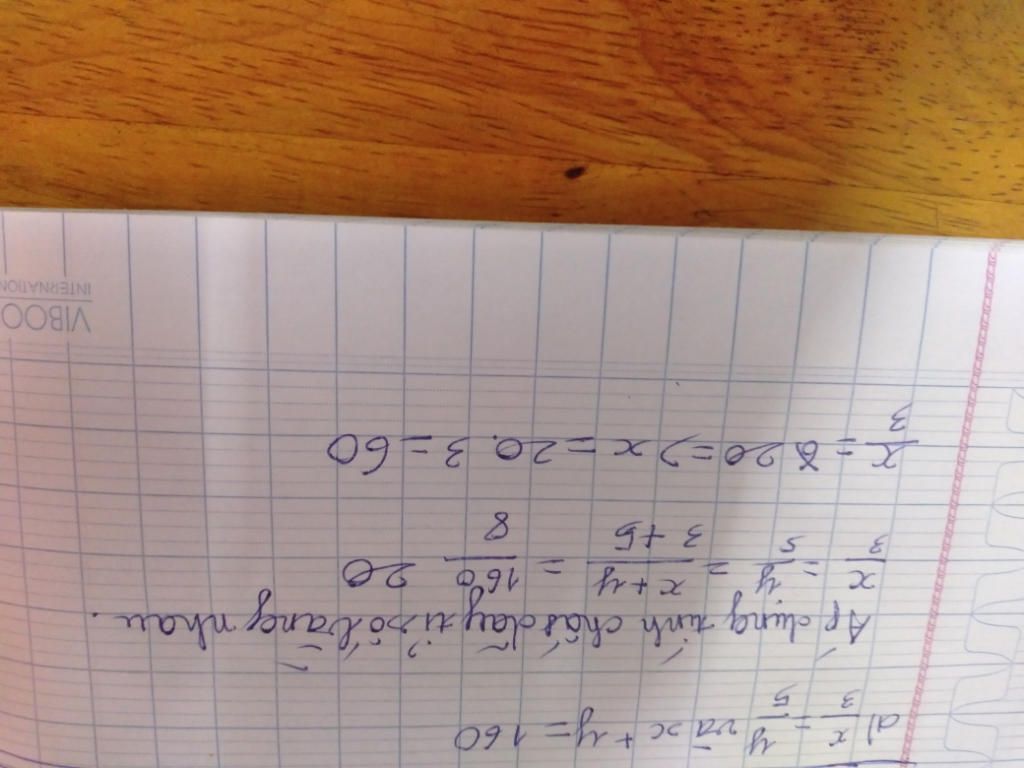 a) x/3 = y/5 và x + y = 160
Áp dụng tính chất dãy tỉ số bằng nhau.
x/3 = y/5 = x+y/3+5 = 160/8 20
x/3 = 20 => x = 20.3 = 60
VIBOO
INTERNATION